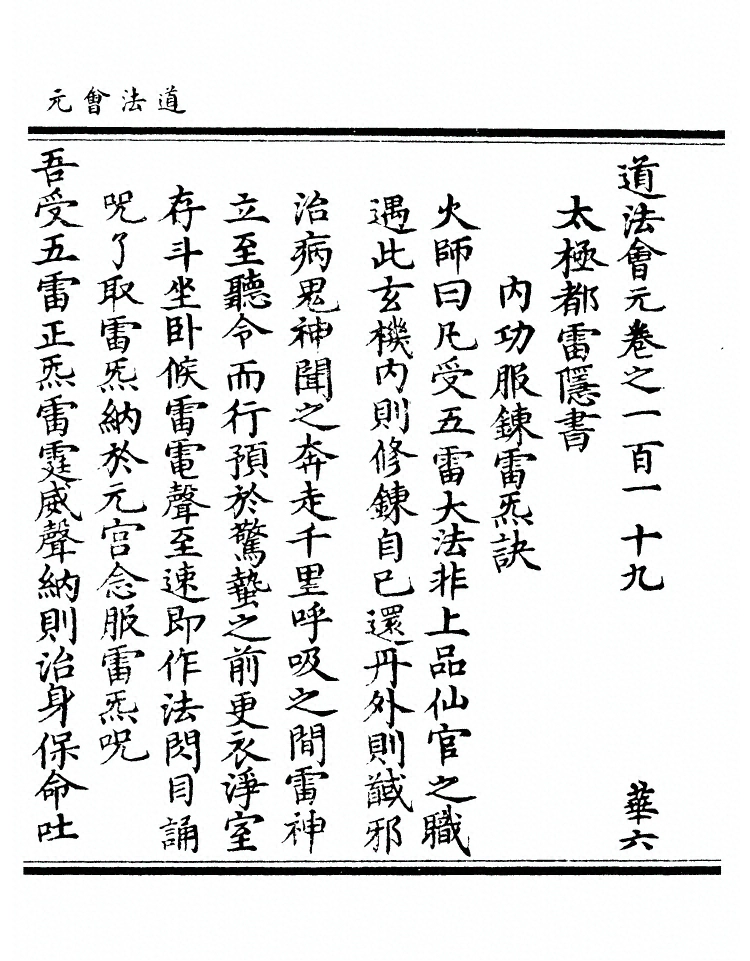 道法會元
道法會元卷之一百一十九 華六
太極都雷隱書
內功服鍊雷炁訣
火師曰凡受五雷大法非上品仙官之職
遇此玄機內則修鍊自已還丹外則馘邪
治病鬼神聞之奔走千里呼吸之間雷神
立至聽令而行預於驚蟄之前更衣淨室
存斗坐卧候雷電聲至速即作法閃目誦
呪了取雷炁納於元宮念服雷炁呪
吾受五雷正炁雷霆威聲納則治身保命吐